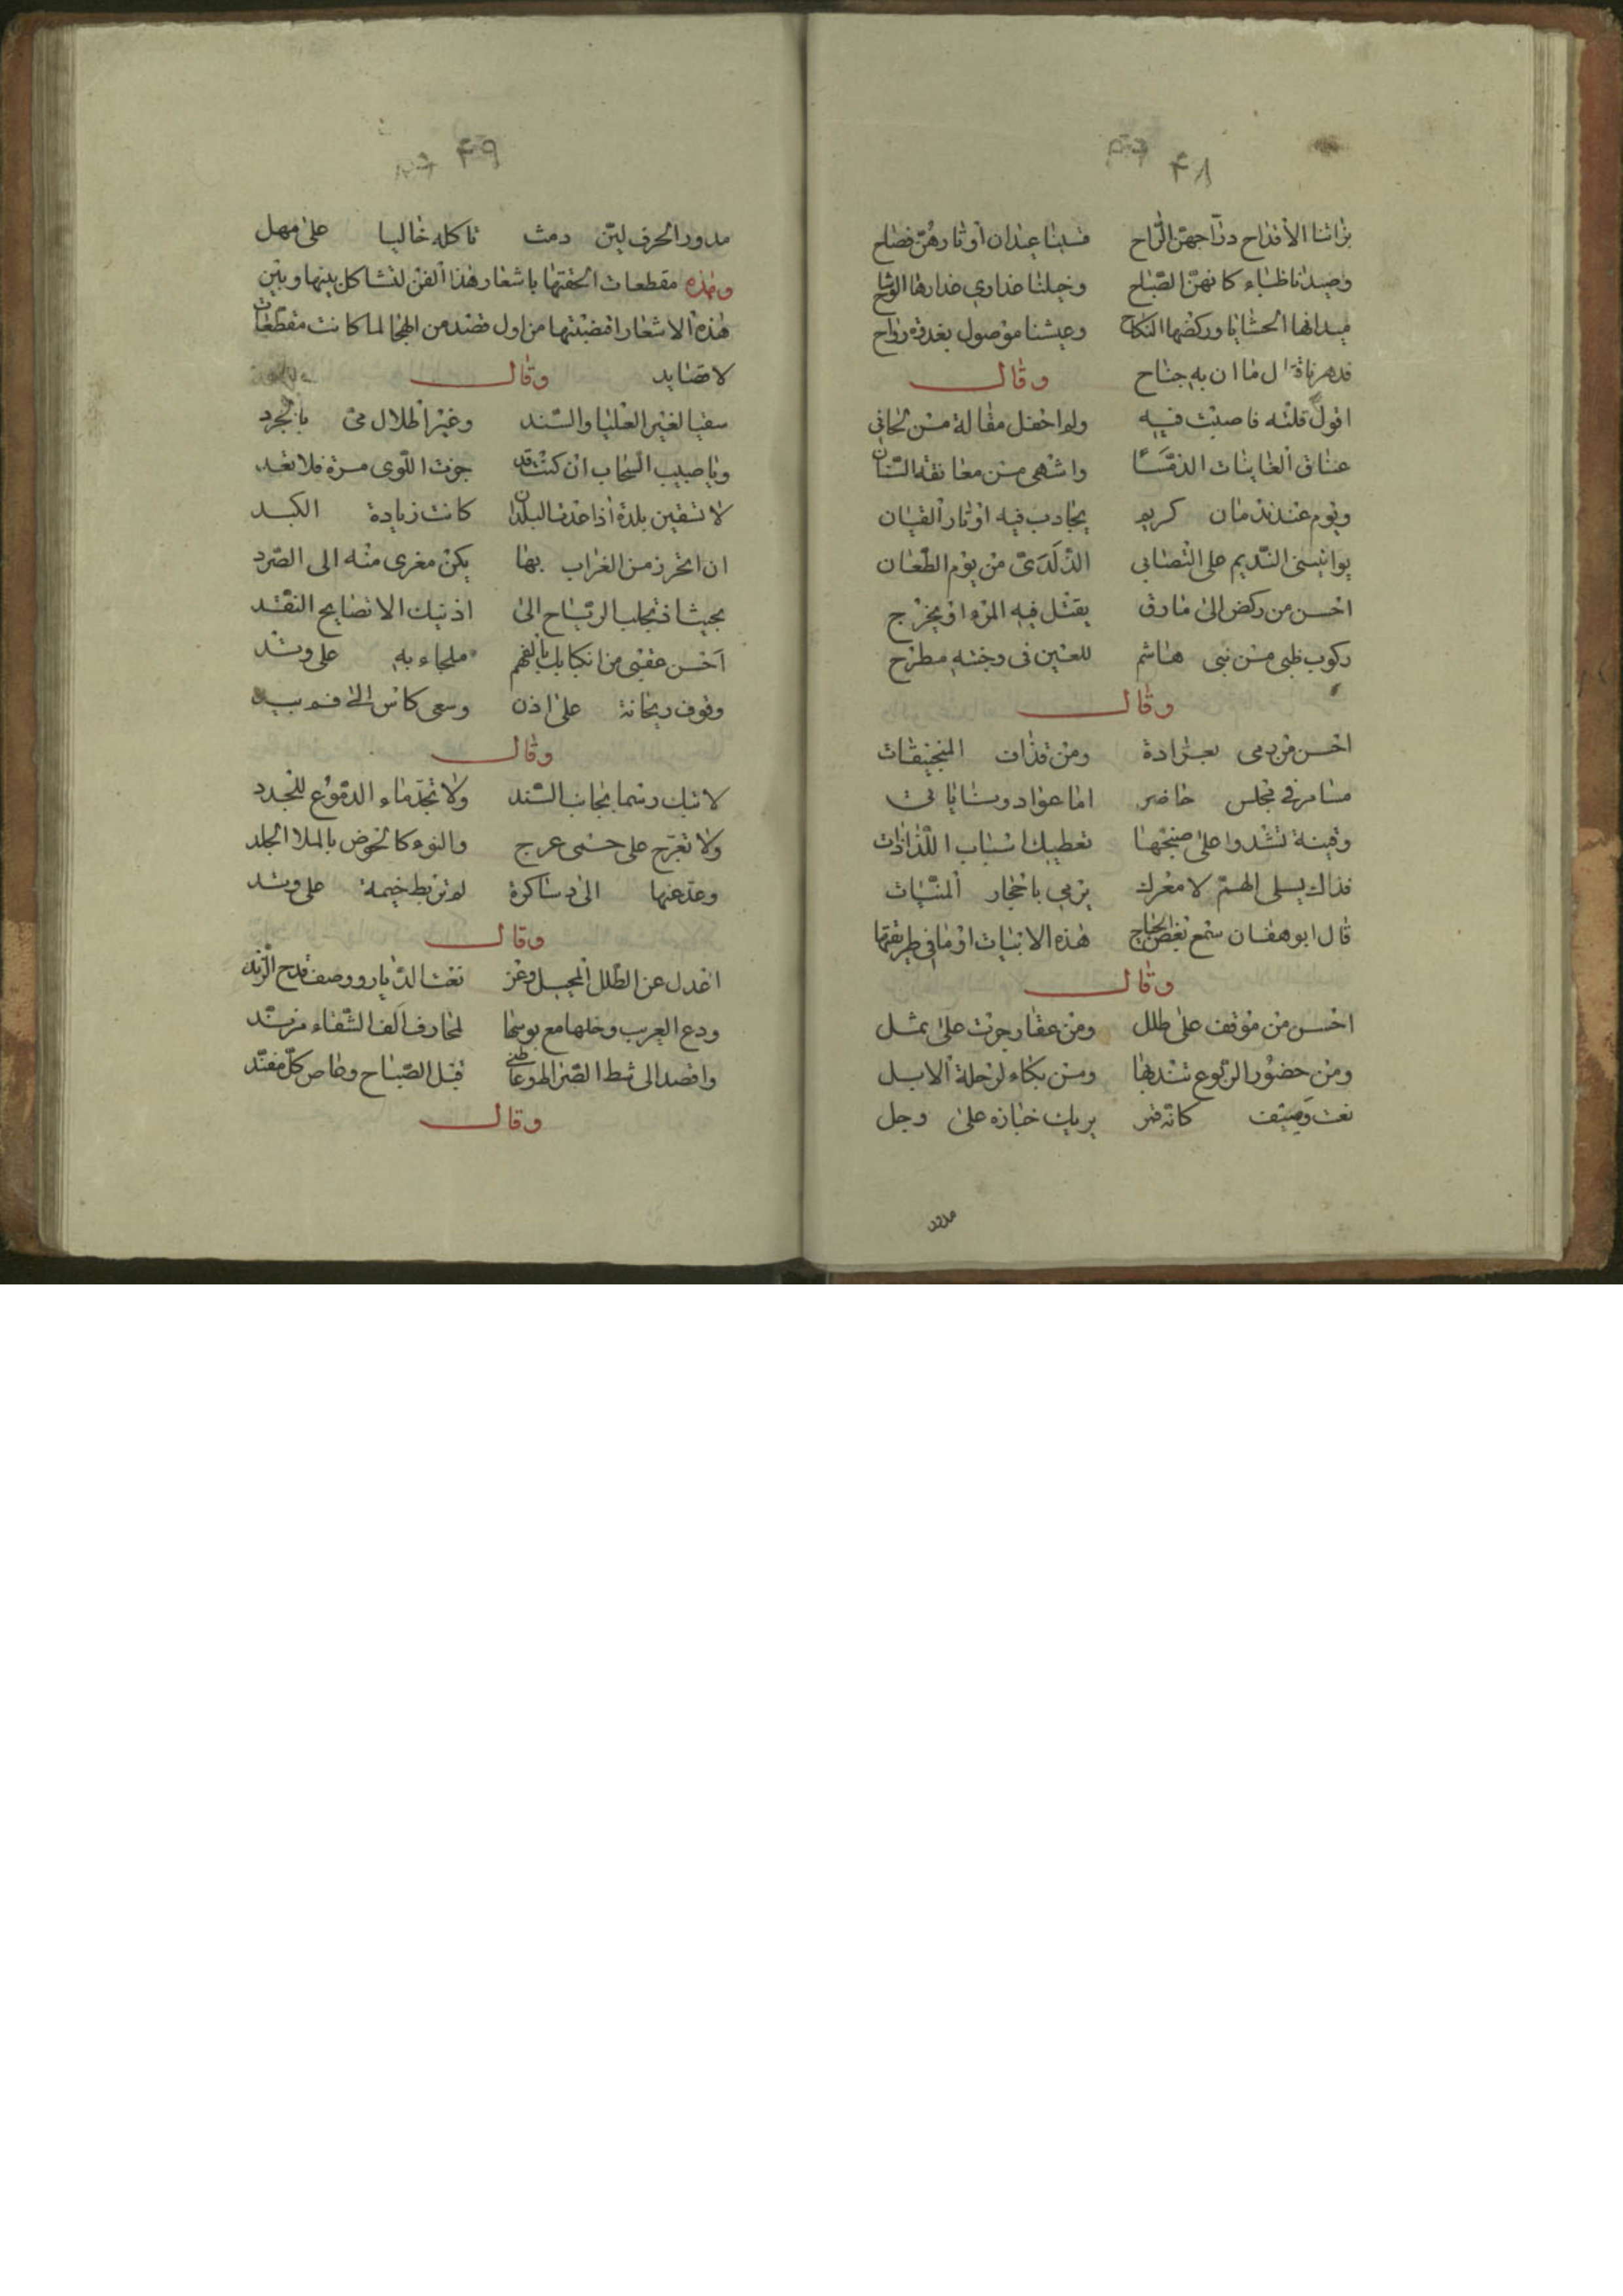 ٤٨
بزاتنا الأقداح دراجهن الراح قسينا عيدان أوتارهن فصاح
وصيدنا ظباء كانهن الصباح وخيلنا عذاري عذارها الوشاح
ميدانها الحشايا وركضها النكاح وعيشنا موصول بغدوة رواح
ما ان به جناح وقال
اقول قلته فاصبت فيه ولم احفل مقالة من لحاني
عناق الغانيات الذ مسا واشهى من معانقة السنان
ويوم عند ندمان كريم يجاذب فيه اوتار القيان
يواتيني النديم على التصابي الذ لدى من يوم الطعان
احسن من ركض الى مارق يقتل فيه المرء او يجرح
ركوب ظبي من بني هاشم للعين في وجنته مطرح
وقال
احسن من رمي بعرادة ومن قذات المنجنيقات
مسامر في مجلس حاضر اما عواد وسنايات
وقينة تشدوا على صنجها تعطيك اسباب اللذاذات
فذاك يسلى الهم لا معرك يرمي باحجار المنيات
قال ابو هفان سمع بعض الحاج هذه الابيات او ما في طريقتها
وقال
احسن من موقف على طلل ومن عقار جرت على بمثل
ومن حضور الربوع تندبها ومن بكاء لرحلة الابل
نعت وصيف كانه قمر يريك خبازه على وجل
مدور
٤٩
مدور الحرف لين دمث تاكله خاليا على مهل
وهذه مقطعات الحقتها باشعار هذا الفن لتشاكل بينها وبين
هذه الاشعار اقتضبتها من اول قصد من الهجا لما كانت مقطعات
لا قصايد وقال
سقيا لغير العليا والسند وغير اطلال مي بالجرد
ويا صبيب السحاب ان كنت قد جزت اللوى مرة فلا تعد
لا تسقين بلدة اذا عدت البلدان كانت زيادة الكبد
ان اتحرز من الغراب بها يكن مغرى منه الى الصرد
بحيث لا تجلب الرياح الى اذنيك الا تصايح النقد
احسن عندي من انكبابك بالفهر ملحا به على وتد
وقوف ريحانة على اذن وسعي كاس الى فم بيد
وقال
لا تبك رسما بجانب السند ولا تجد ماء الدموع للجدد
ولا تعرج على حسى عرج والنوء كالحوض بالملا الجلد
وعد عنها الى دساكرة لم تربط خيمة على وتد
وقال
اعدل عن الطلل المحيل وعن نعت الديار ووصف قدح الزند
ودع العريب وخلها مع بوسها لمحارف الف الشقاء مزند
واقصد الى شط قبل الصباح وعاص كل مفند
وقال